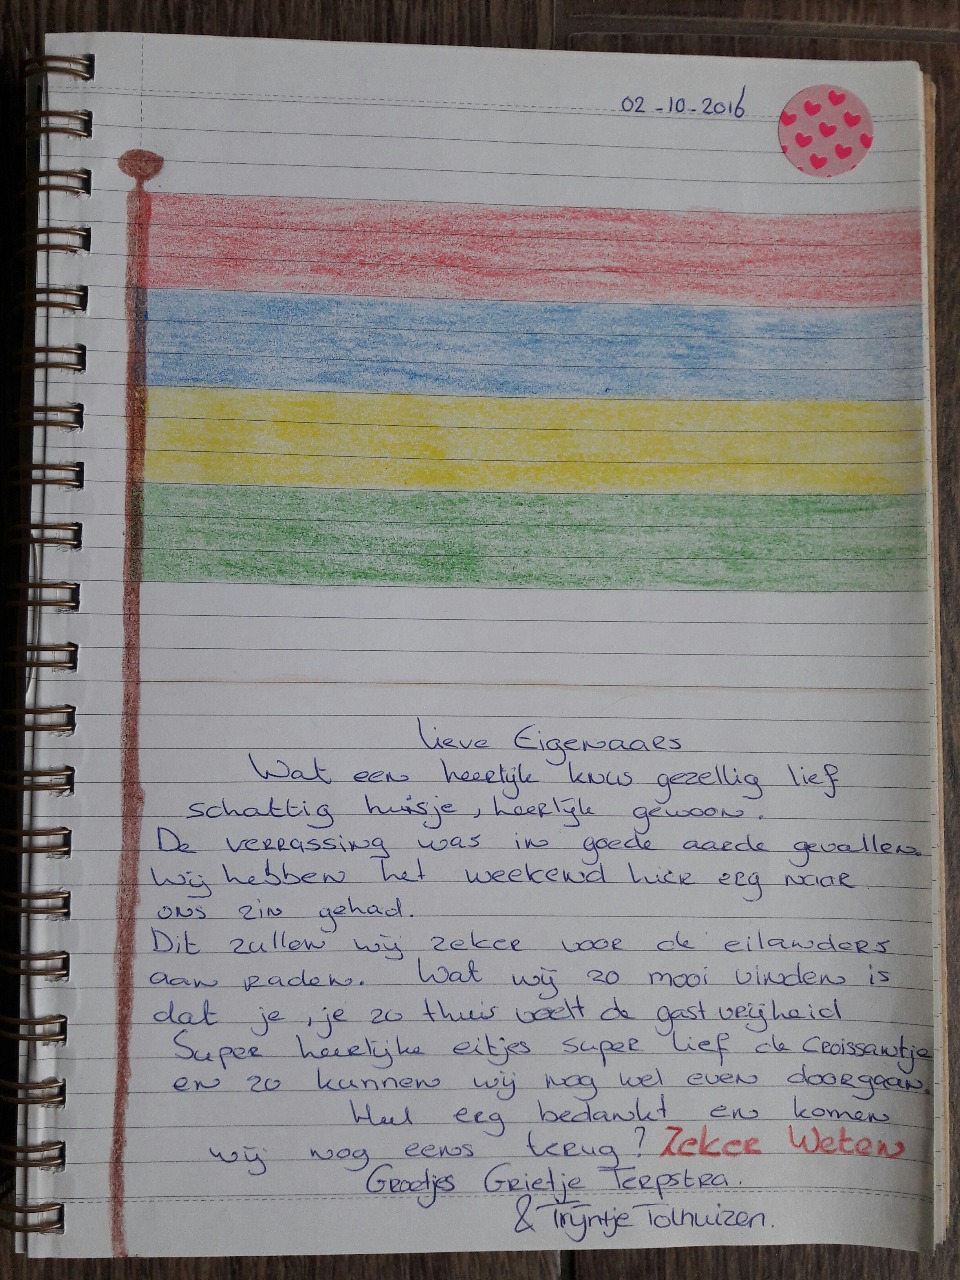 02-10-2016
lieve Eigenaars
Wat een heerlijk knus gezellig lief
schattig huisje, heerlijk gewoon.
De verrassing was in goede aarde gevallen.
Wij hebben het weekend hier erg naar
ons zin gehad.
Dit zullen wij zeker voor de eilanders
aan raden. Wat wij zo mooi vinden is
dat je, je zo thuis voelt de gastvrijheid
Super heerlijke eitjes super lief de Croissantje
en zo kunnen wij nog wel even doorgaan.
Heel erg bedankt en komen
wij nog eens terug? Zeker Weten
Groetjes Grietje Terpstra.
& Trijntje Tolhuizen.